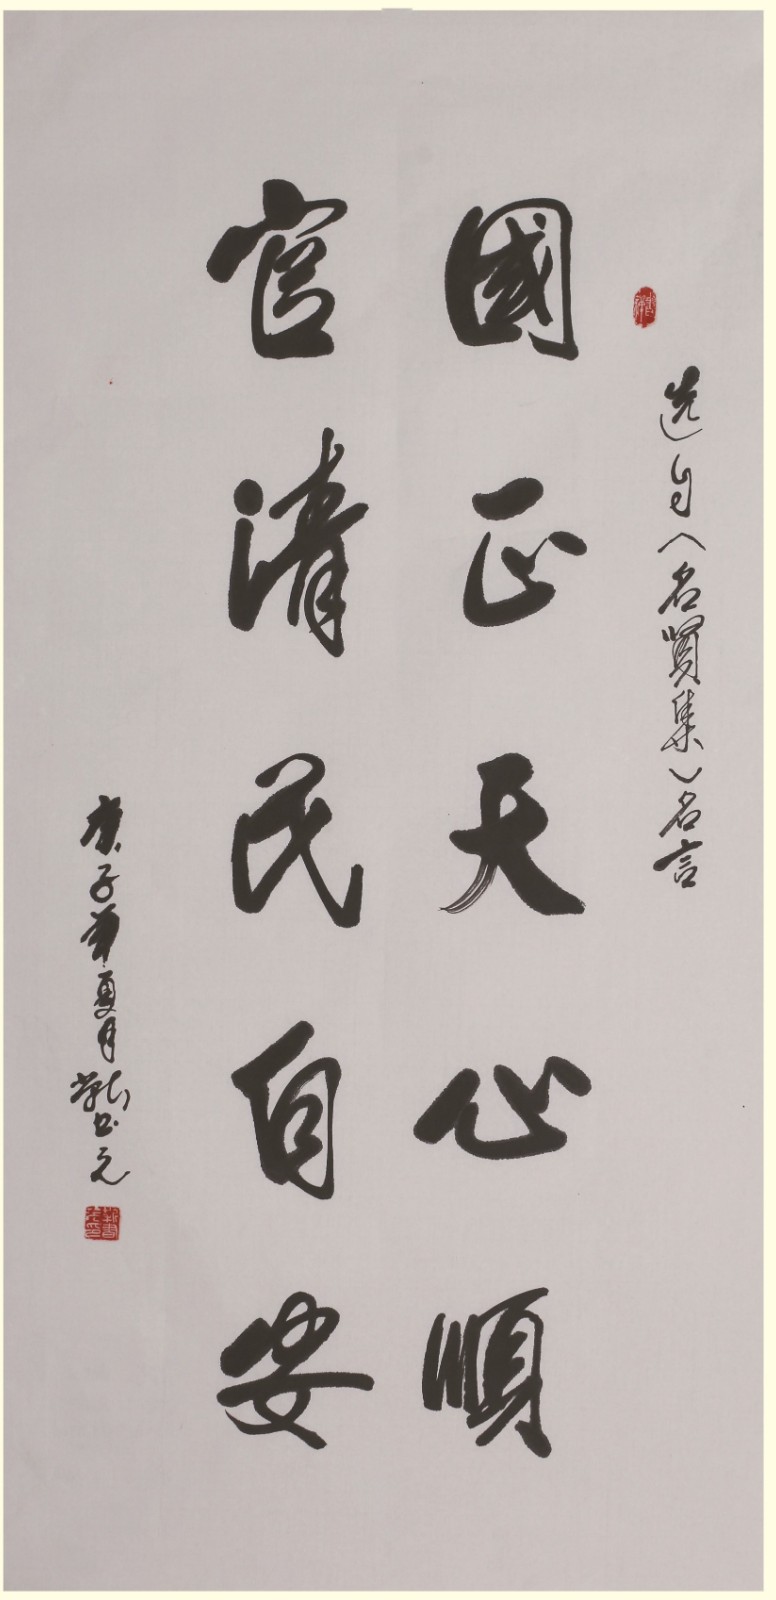 选自〈名賢集〉名言
國正天心順
官清民自安
庚子年夏月书元